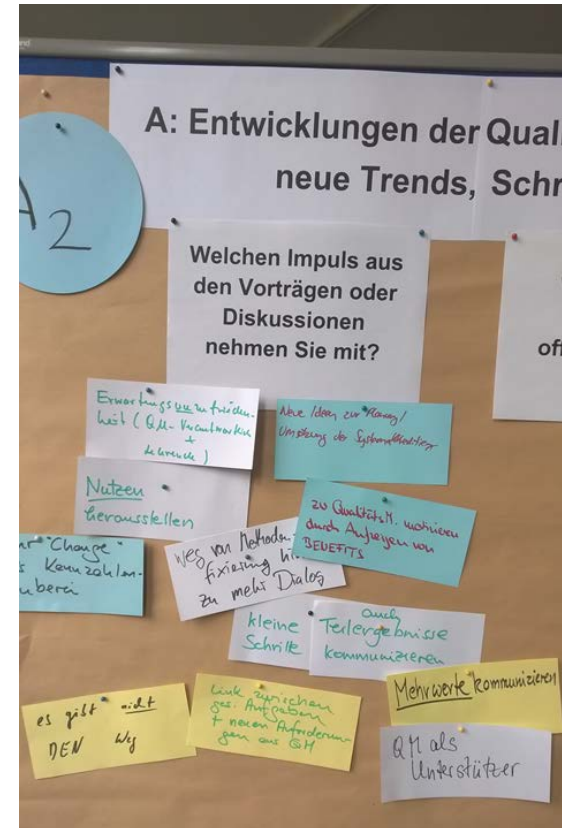 A: Entwicklungen der Qual
neue Trends, Schr
A2
Welchen Impuls aus
den Vorträgen oder
Diskussionen
nehmen Sie mit?
off
Erwartungsunzufrieden-
heit (QM-Verantwortlich
+
Lehrende)
Neue Ideen zur Planung/
Umsetzung der
Nutzen
herausstellen
zu QualitätsM. motivieren
durch Aufzeigen von
BENEFITS
"Change"
Kennzahlen-
uberei
weg von Methoden-
fixierung hi
zu mehr Dialog
kleine
Schritte
auch
Teilergebnisse
kommunizieren
Mehrwerte kommunizieren
es gibt nicht
DEN Weg
Link zwischen
ges. Aufgaben
+ neuen Anforderun-
gen aus QM
QM als
Unterstützer